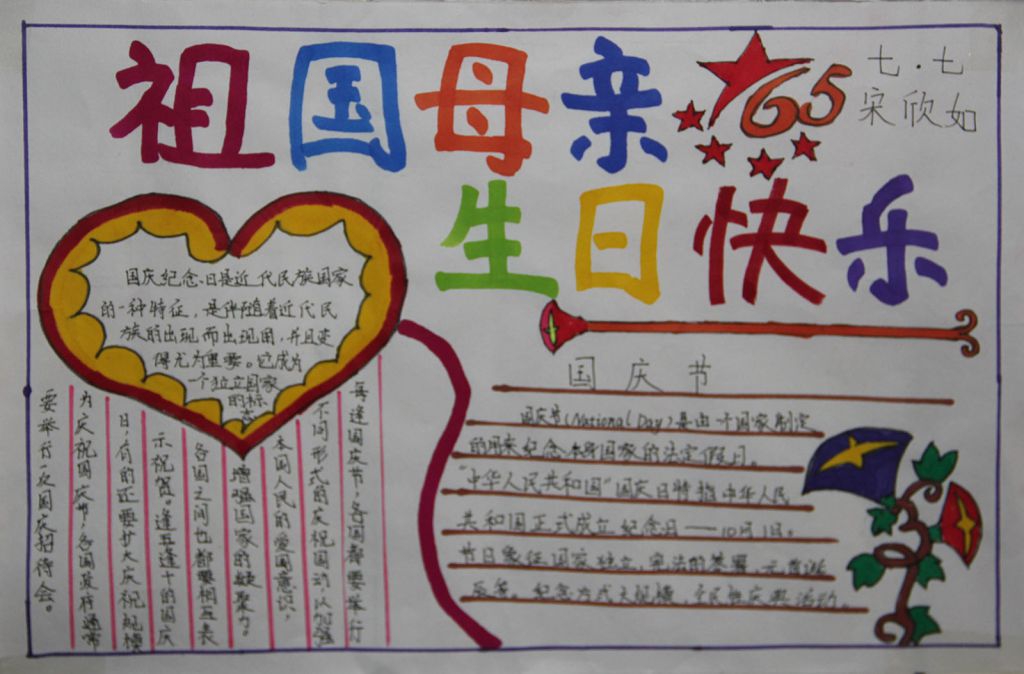 祖国母亲
65
七.七
宋欣如
生日快乐
国庆纪念日是近代民族国家
的一种特征，是伴随着近代民
族的出现而出现国，并且变
得尤为重要。它成为
一个独立国家
的标
国庆节
国庆节(National Day)是由一个国家制定
的用来纪念本身国家的法定假日。
“中华人民共和国”国庆日特指中华人民
共和国正式成立纪念日——10月1日。
节日象征国家独立，宪法的签署，元首诞
辰等。纪念方式大规模，全民性庆典活动。
每逢国庆节，各国都要举行
不同形式的庆祝国动，以加强
本国人民的爱国意识，
增强国家的凝聚力。
各国之间也都要相互表
示祝贺。逢五逢十的国庆
日，有的还要扩大庆祝规模
为庆祝国庆节，各国政府通常
要举行一次国庆招待会。